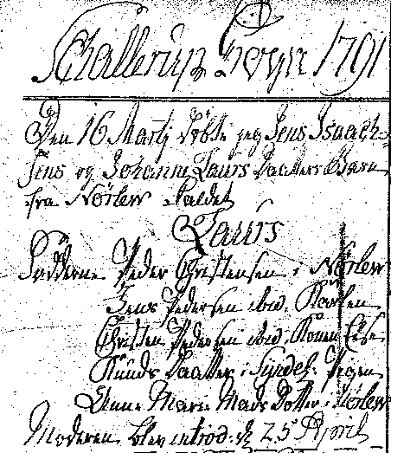 Skallerup Sogn 1791
Den 16 Martj døbte jeg Jens Isach-
sens og Johanne Laurs Daatters Barn
fra Nörlev kaldet
Laurs
Fadderne Peder Christensen i Nörlev
Jens Pedersen ibid. Karlen
Christen Pedersen ibid. Konen Else
Knuds Daatter i Pigen
Anne Marie Mads Dotter i Nörlev
Moderen blev introd: d 25 April